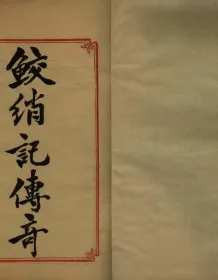 鮫綃記傳奇